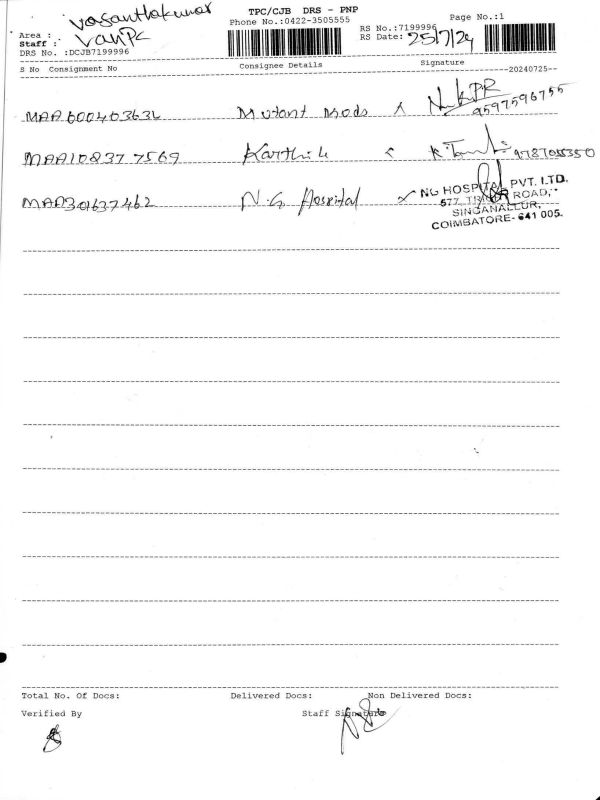 vasanthakumar
TPC/CJB DRS - PNP
Phone No.:0422-3505555
Page No.:1
Area :
RS No.:7199996
Staff : VanPC
RS Date: 25/7/24
DRS No. :DCJB7199996
S No Consignment No Consignee Details Signature --20240725--
MAA600403632 Mutant Mods x
9597596755
MAA108377569 Karthik
MAA301637462 N.G Hospital x
NG HOSPITAL PVT. LTD.
577, ROAD,
SINGANALLUR,
COIMBATORE- 641 005.
Total No. Of Docs: Delivered Docs: Non Delivered Docs:
Verified By Staff Signature